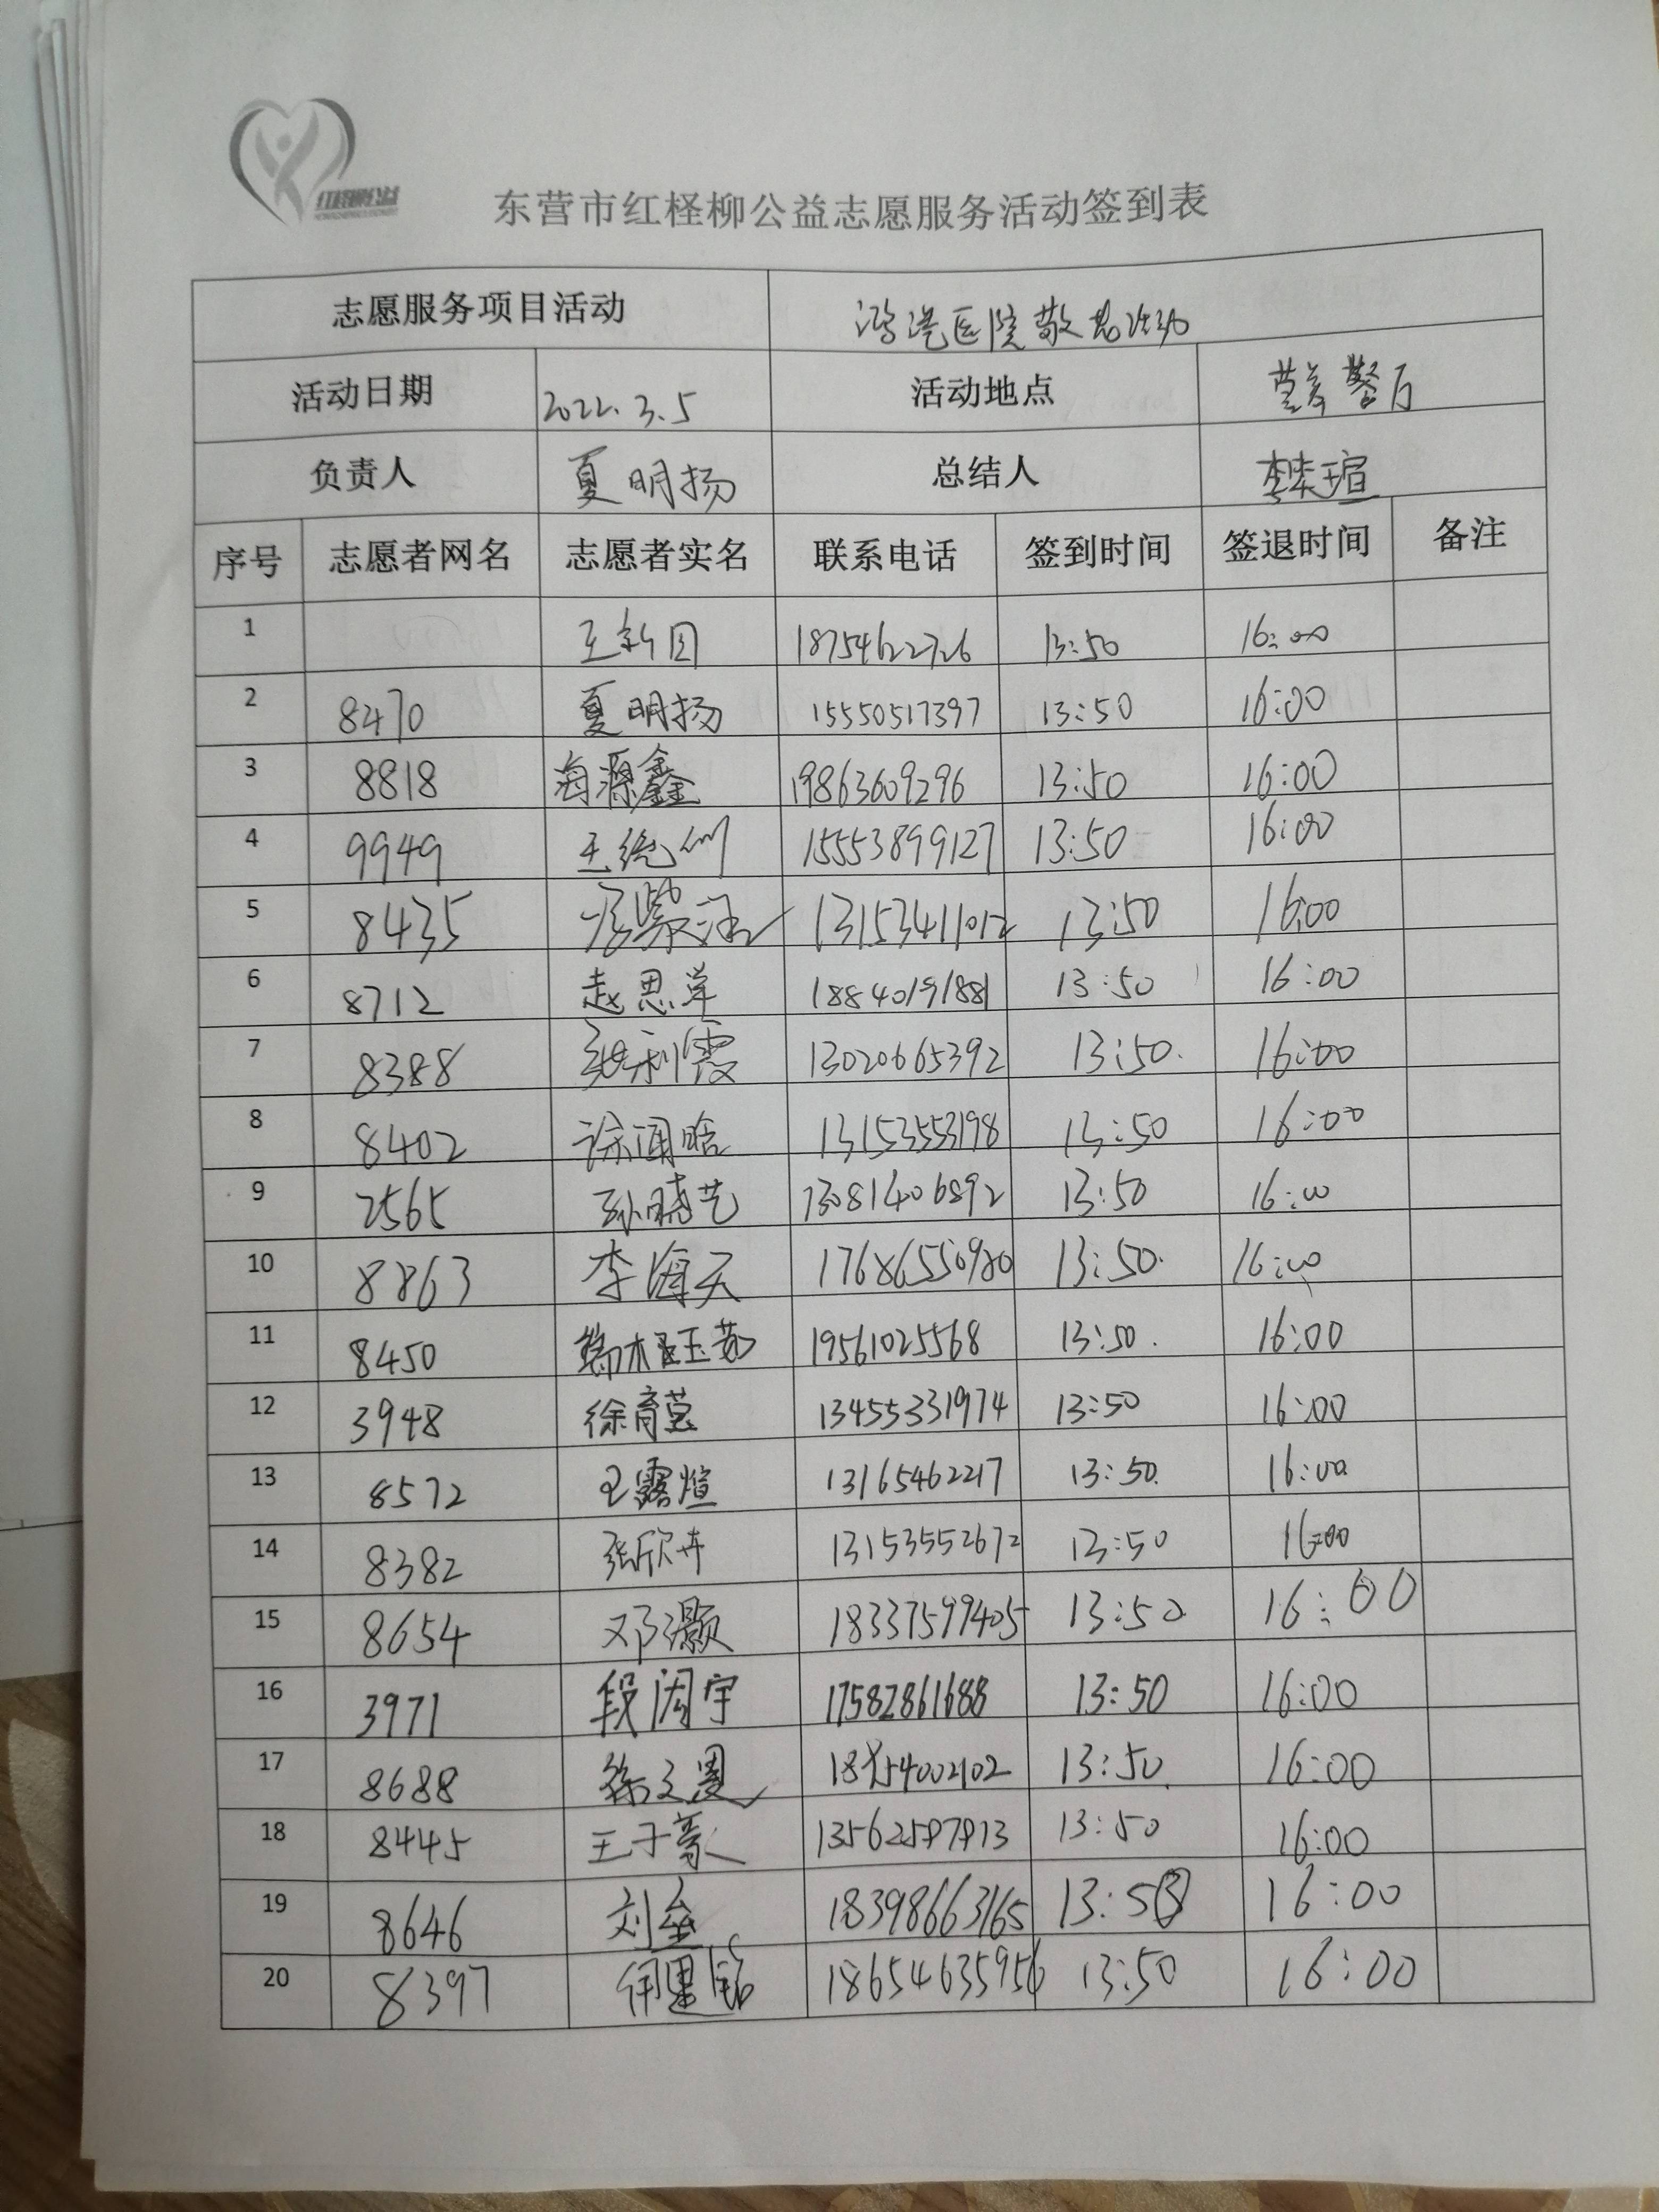 红柽柳公益
东营市红柽柳公益志愿服务活动签到表
志愿服务项目活动 鸿港医院敬老活动
活动日期 2022.3.5 活动地点
负责人 夏明扬 总结人
序号 志愿者网名 志愿者实名 联系电话 签到时间 签退时间 备注
1 王新月 18754622726 13:50 16:00
2 8470 夏明扬 15550517397 13:50 16:00
3 8818 海源鑫 19863609296 13:50 16:00
4 9949 15553899127 13:50 16:00
5 8435 13153411012 13:50 16:00
6 8712 赵思草 18840191881 13:50 16:00
7 8388 张利霞 13020665392 13:50. 16:00
8 8402 徐雨晗 13153553198 13:50 16:00
9 2565 孙晓艺 13081406892 13:50 16:00
10 8863 李海天 17686550980 13:50. 16:00
11 8450 19561025568 13:50. 16:00
12 3948 徐育莹 13455331974 13:50 16:00
13 8572 王露煊 13165462217 13:50. 16:00
14 8382 张欣卉 13153552672 13:50 16:00
15 8654 邓灏 18337599405 13:50 16:00
16 3971 段闳宇 17582861688 13:50 16:00
17 8688 徐文恩 13:50. 16:00
18 8445 王子豪 13562597913 13:50 16:00
19 8646 刘垒 18398663165 16:00
20 8397 18654635956 13:50 16:00